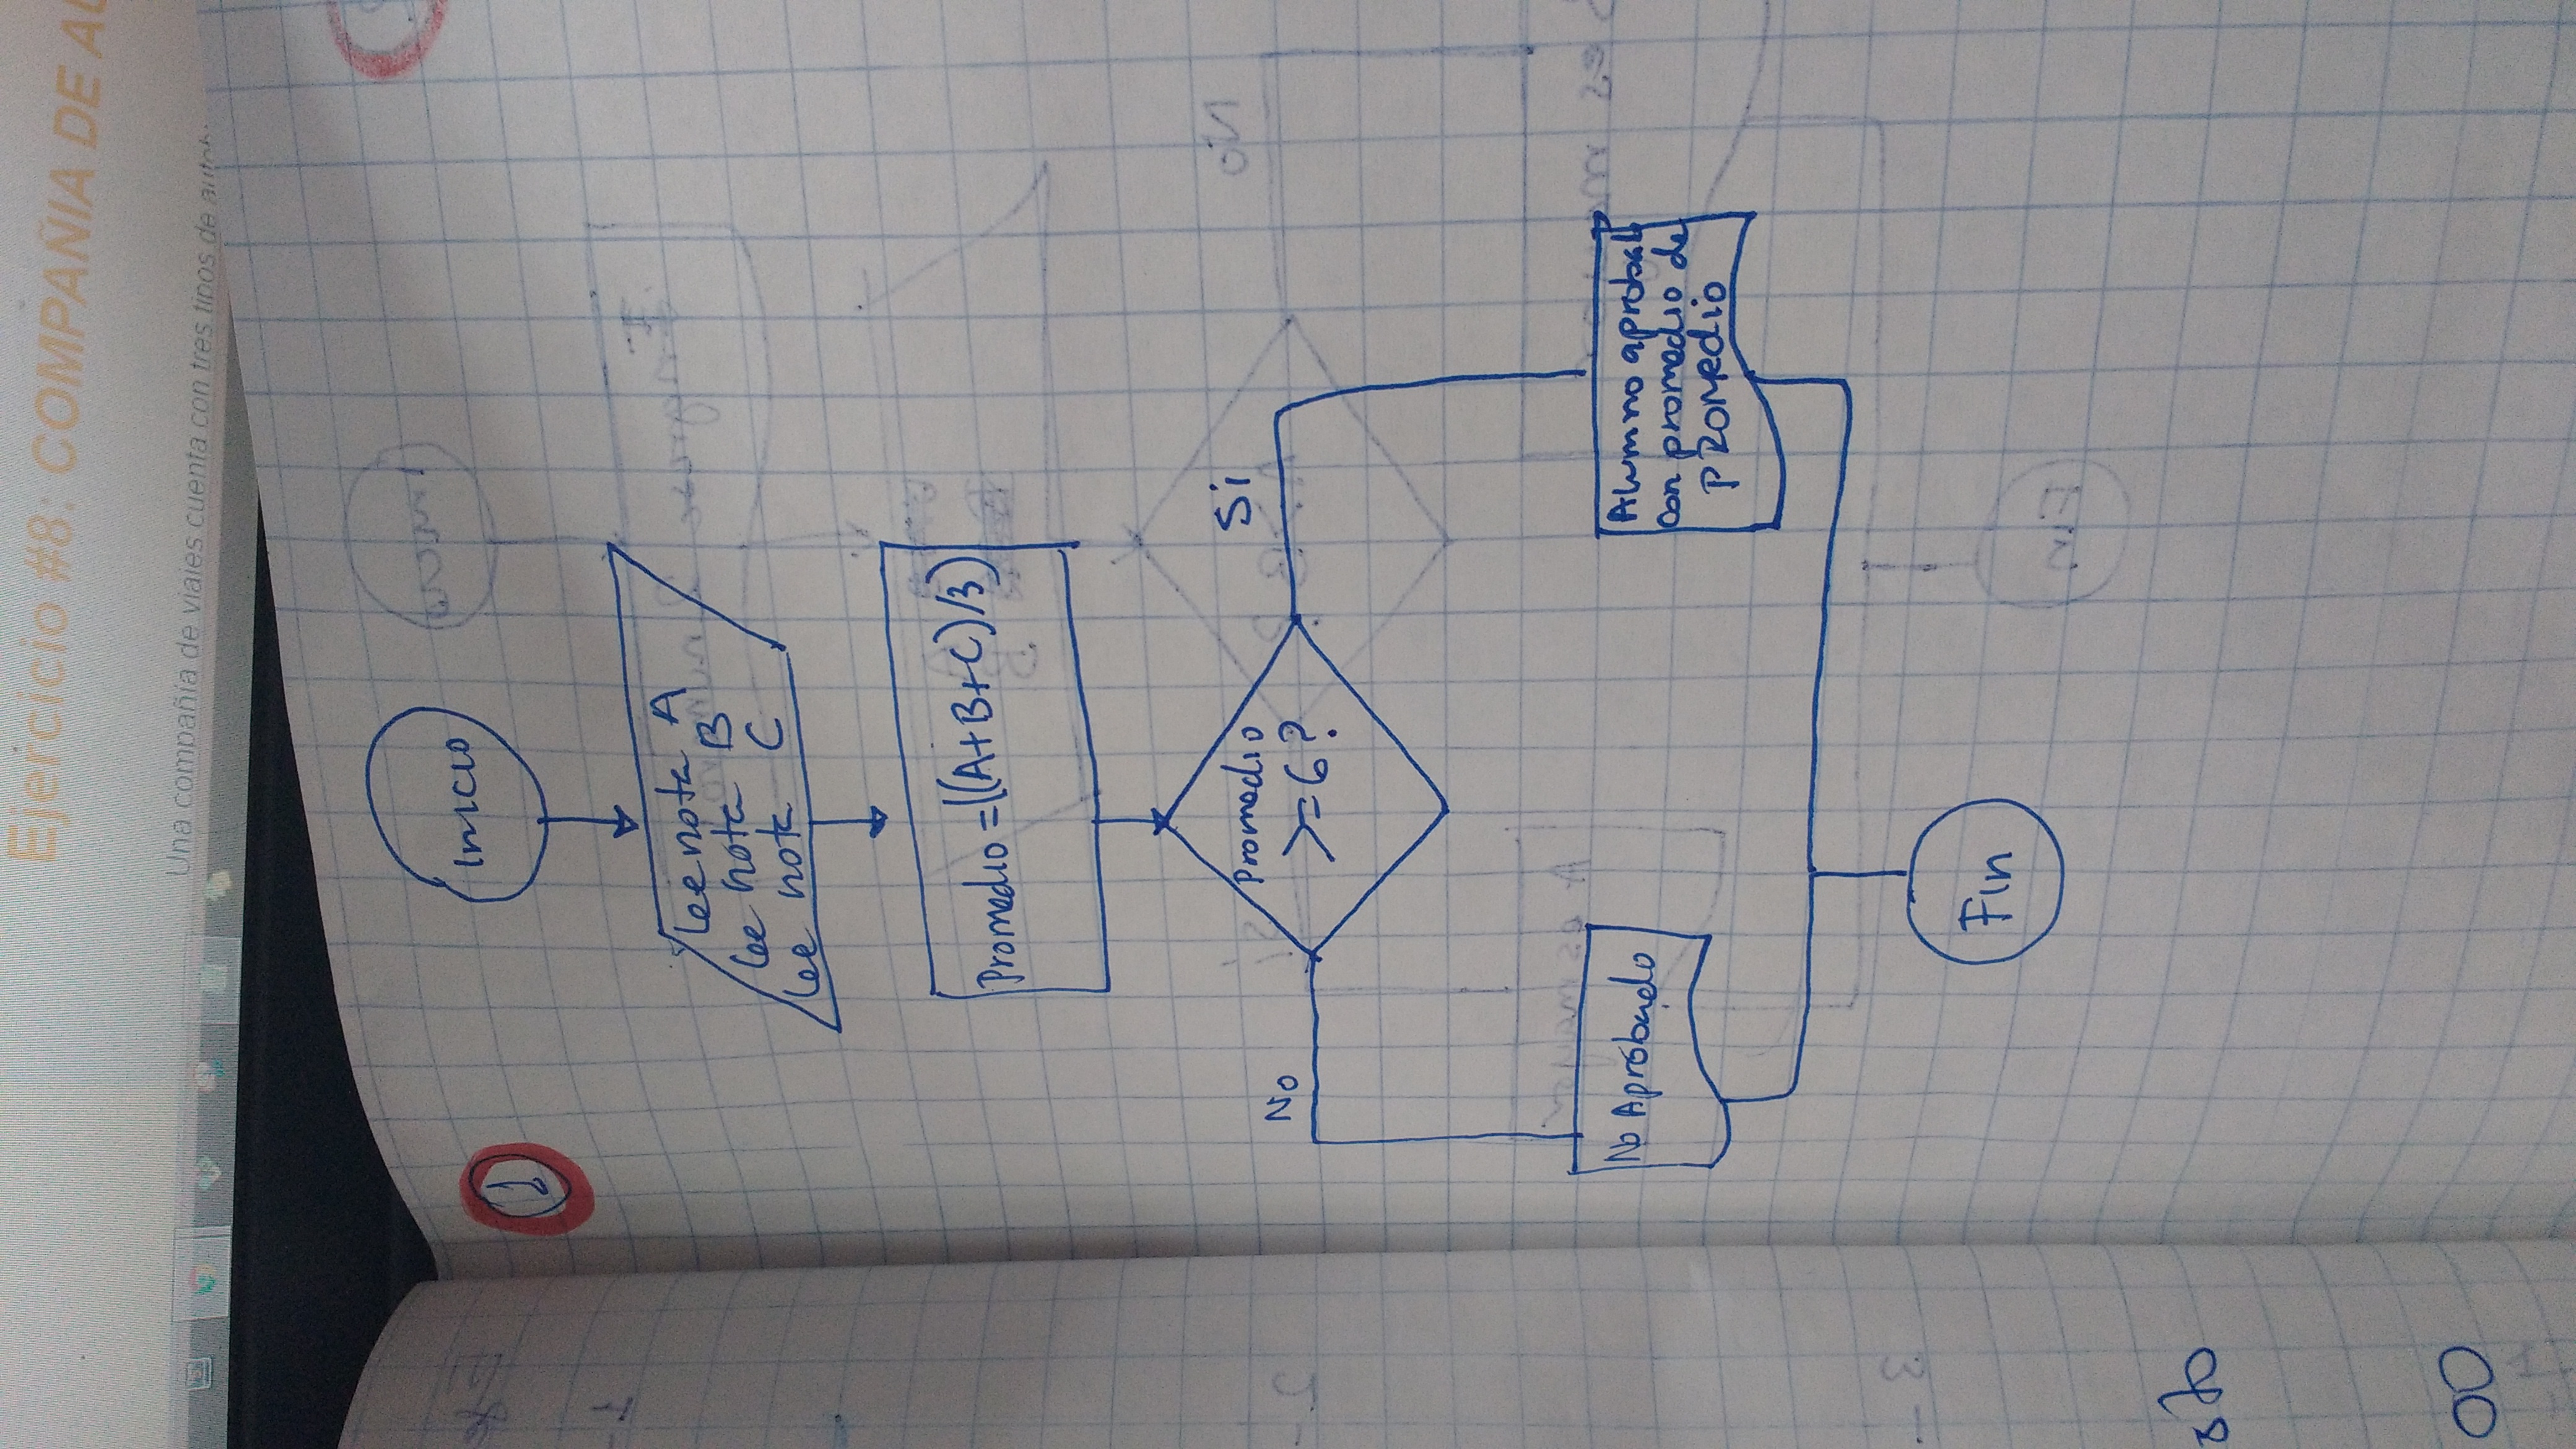 Ejercicio #8: COMPAÑIA DE
Una compañía de viajes cuenta con tres tipos de
1
Inicio
Lee nota A
Lee nota B
Lee nota C
Promedio = ((A+B+C)/3)
Promedio
>=6?
No
Si
No Aprobado
Alumno aprobado
con promedio de
PROMEDIO
Fin